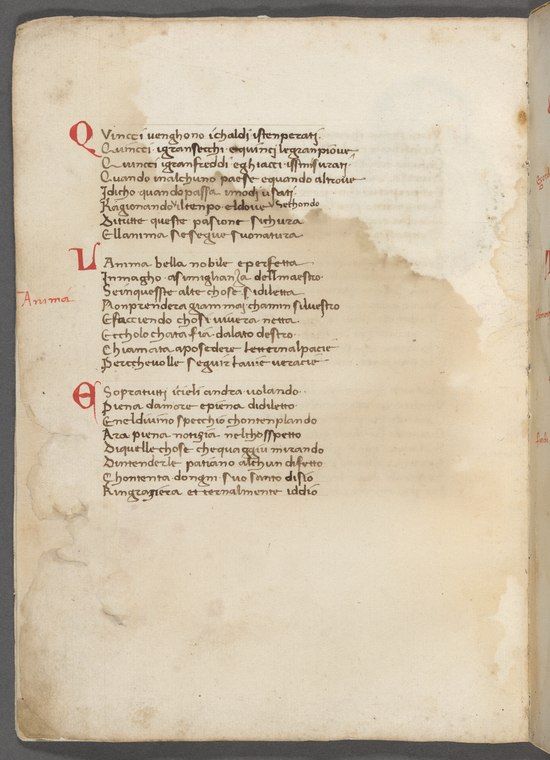 Quincci venghono ichaldi istenperati
Quincci igransecchi equinci legranpiove
Quincci igranfreddi eghiacci issmisurati
Quando inalchuno paese equando altrove
Idicho quandopassa imodi usati
Ragionando iltempo eldove Sechondo
Ditutte queste pasione sichura
Ellanima sesegue suo natura
LAnima bella nobile eperfetta
Inmagho asimiglianza dellmaestro
Seinquesste alte chose sidiletta
Nonprendera giammai chamin silvestro
Efacciendo chosi vivera netta
Eccholochata fia dalato destro
Chiamata aposedere letternalpacie
Percchevolle seguir lavie veracie
Anima
ESopratutti icieli andra volando
Piena damore epiena didiletto
Eneldivino specchio chontenplando
Ara piena notizia nelchosspetto
Diquelle chose chequaggiu mirando
Dintenderle patiano alchun difetto
Chontenta dongni suo santo disio
Ringraziera etternalmente iddio